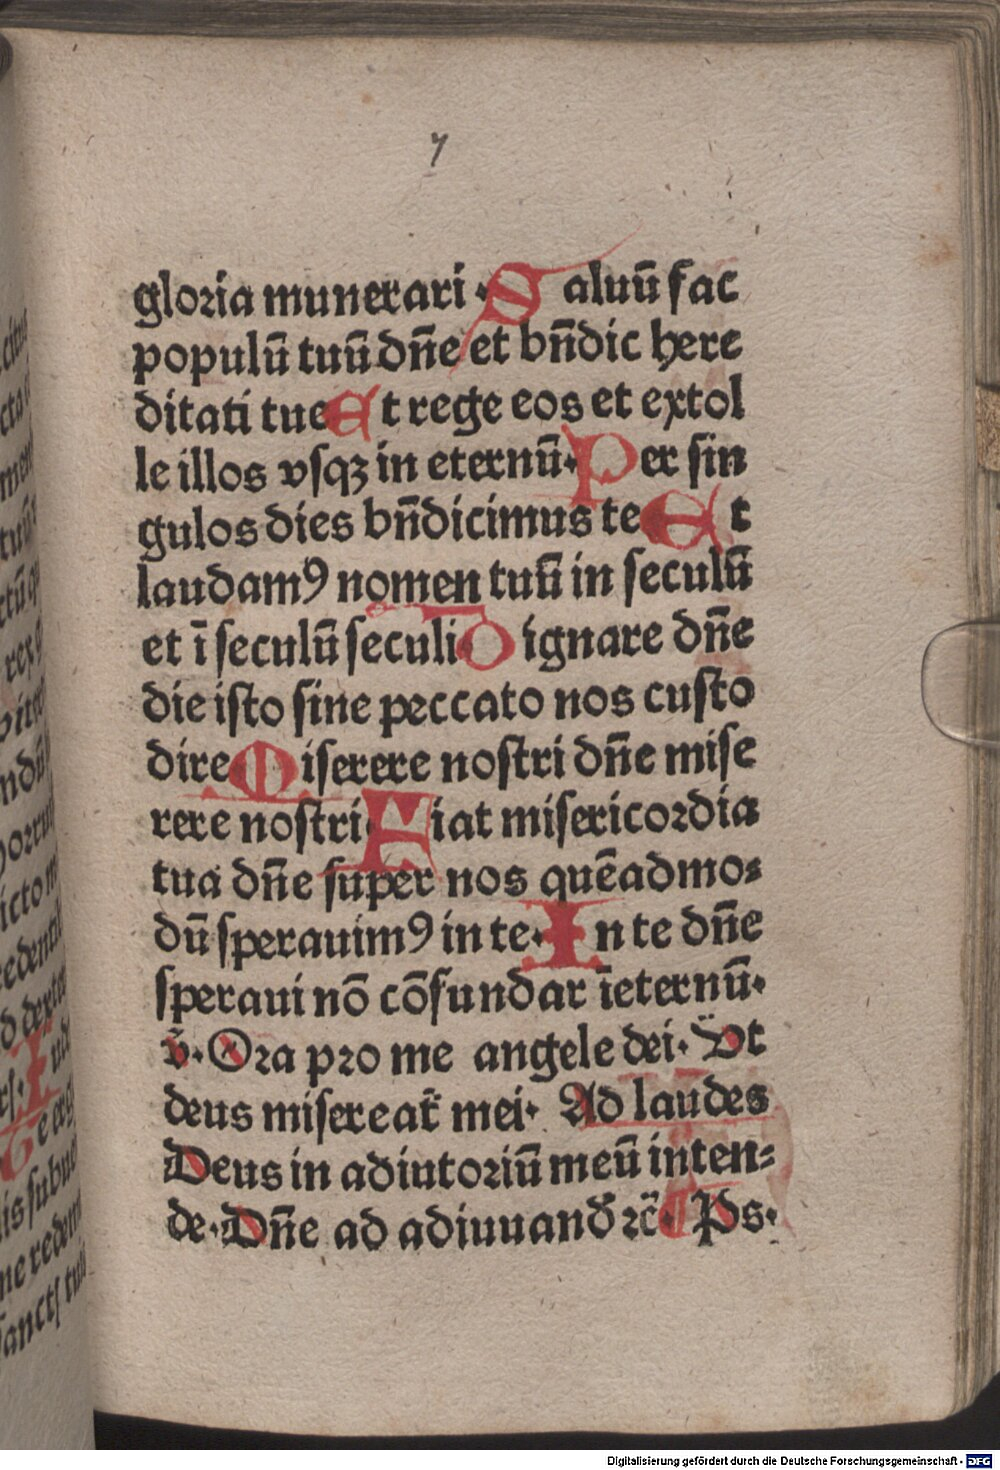 7
gloria munerari · Saluū fac
populū tuū dn̄e et bn̄dic here
ditati tue Et rege eos et extol
le illos vsqꝫ in eternū · Per sin
gulos dies bn̄dicimus te Et
laudamꝰ nomen tuū in seculū
et ī seculū seculi Dignare dn̄e
die isto sine peccato nos custo
dire Miserere nostri dn̄e mise
rere nostri Fiat misericordia
tua dn̄e super nos quēadmo⸗
dū sperauimꝰ in te · In te dn̄e
speraui nō cōfundar īeternū ·
v̄ · Ora pro me angele dei · Vt
deus misereat̄ mei · Ad laudes
Deus in adiutoriū meū inten⸗
de · Dn̄e ad adiuuand̄ ⁊c̄ · Ps ·
Digitalisierung gefördert durch die Deutsche Forschungsgemeinschaft - DFG